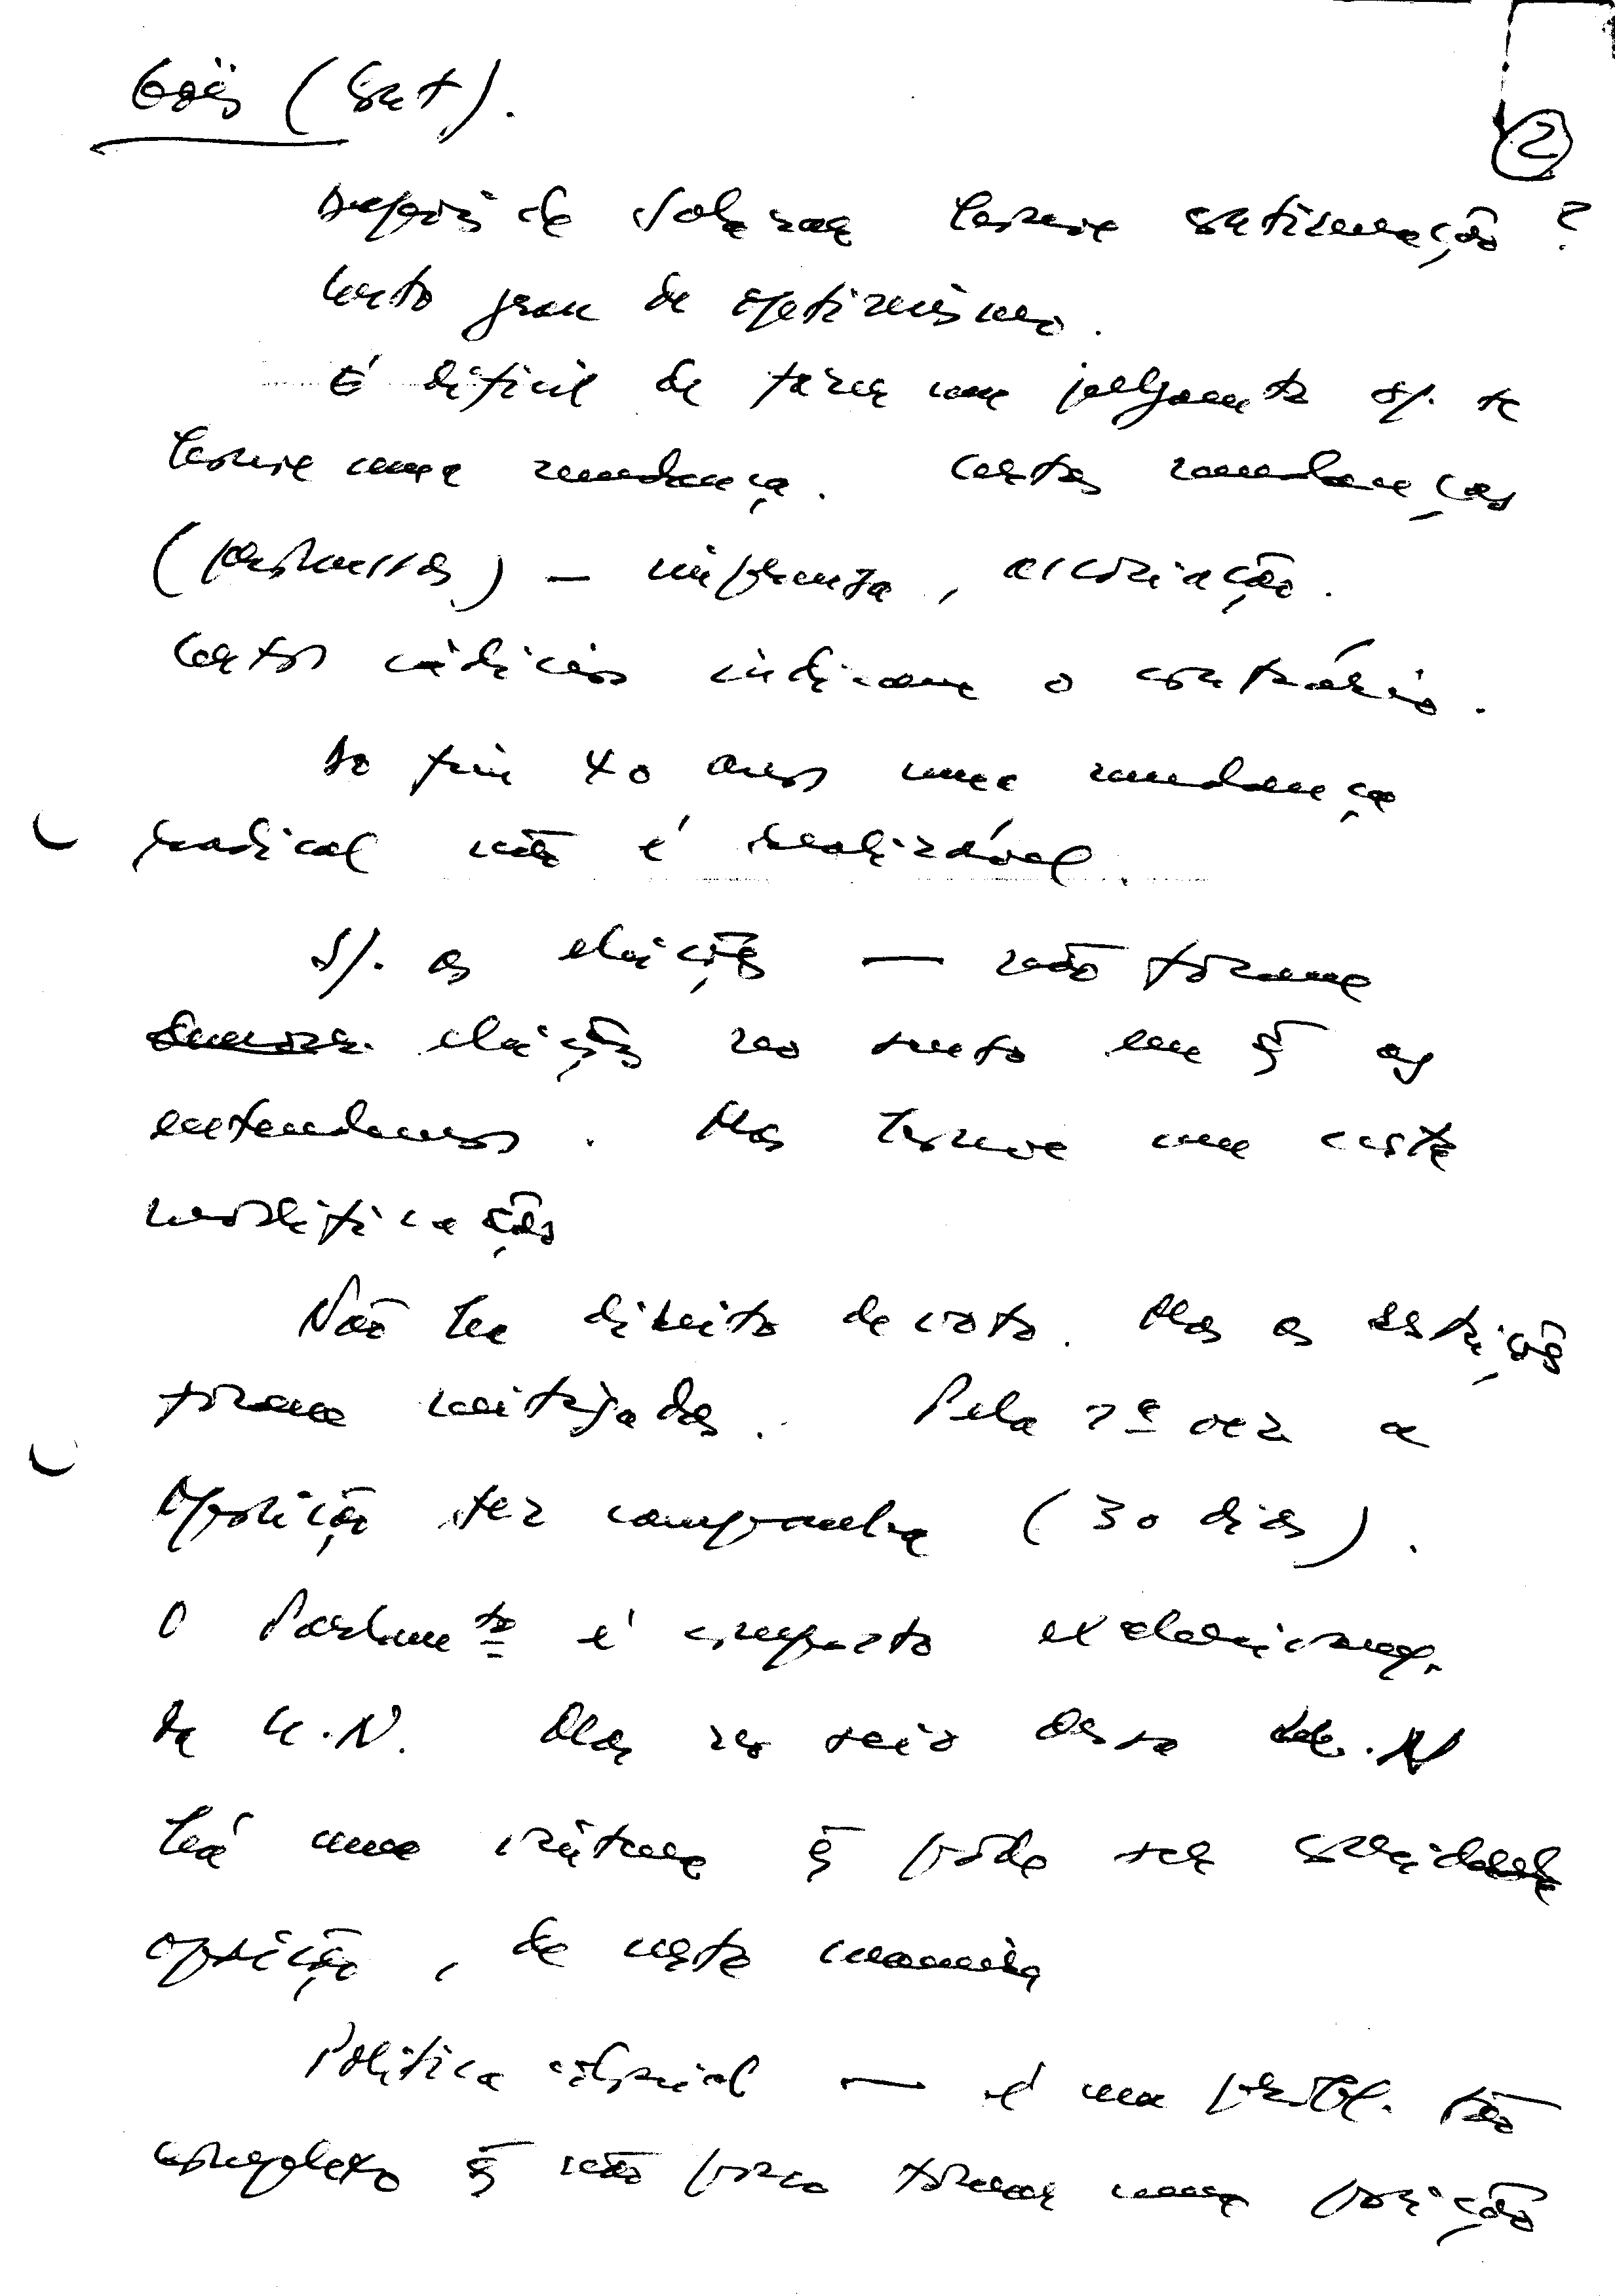 Góis (Cont).
2
depois de Salazar houve continuação?
Certo grau de optimismo.
É difícil de fazer um julgamento s/. se
houve uma mudança. Certas mudanças
(promessas) — imprensa, associação.
Certos indícios indicam o contrário.
Ao fim 40 anos uma mudança
radical não é realizável.
S/. as eleições — não foram
eleições no sentido em q̃ as
entendemos. Mas houve uma certa
modificação
Não há direito de voto. Mas as restrições
foram mitigadas. Pela 1ª vez a
oposição fez campanha (30 dias).
O Parlamto é composto
da U.N. Mas no seio desta U.N
há uma q̃ pode ser considerada
oposição, de certa maneira
Política colonial — é um probl. tão
complexo q̃ não posso tomar uma posição